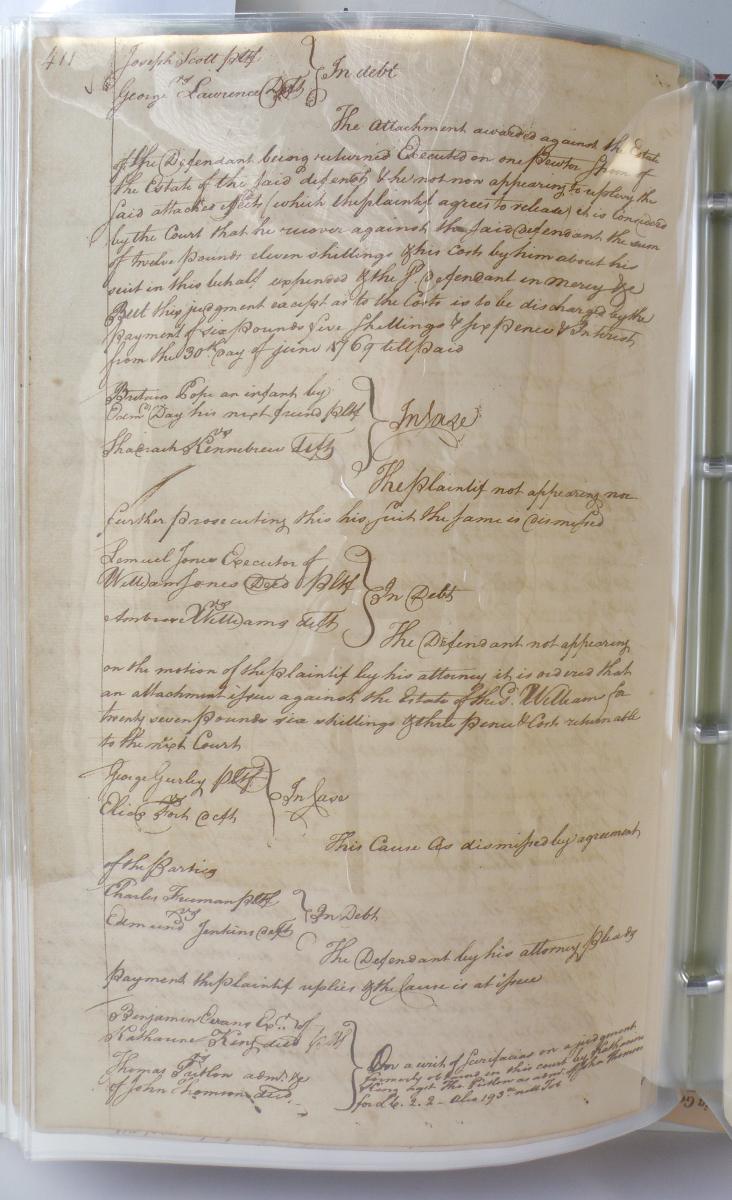 411 Joseph Scott pltf
vs } In debt
George Lawrence Deft
The attachment awarded against the Estate
of the Defendant being returned Executed on one Pewter of
the Estate of the said defend.t & he not now appearing to replevy the
said attached effects (which the plaintif agrees to release) it is Considered
by the Court that he recover against the said defendant the sum
of twelve pounds eleven shillings & his Costs by him about his
suit in this behalf expended & the s.d defendant in mercy &c
But this judgment except as to the Costs is to be discharged by the
payment of six pounds five shillings & six pence & Interest
from the 30th day of june 1769 till paid
Britain Pope an infant by
Edm.d Day his next friend pltf
vs } In Case
Shadrach Kennebrew Deft
The plaintif not appearing nor
further prosecuting this his suit the same is dismissed
Lemuel Jones Executor of
William Jones Deced pltf
vs } In Debt
Ambrose Williams deft
The Defendant not appearing
on the motion of the plaintif by his attorney it is ordered that
an attachment issue against the Estate of the s.d Williams for
twenty seven pounds six shillings & three pence & Costs returnable
to the next Court
George Gurley pltf
vs } In Case
Elias Fort deft
This Cause is dismissed by agreement
of the Parties
Charles Freeman pltf
vs } In Debt
Edmund Jenkins deft
The Defendant by his attorney pleads
payment the plaintif replies & the Cause is at issue
Benjamin Evans Ex.r of
Katharine King deced pltf
vs
Thomas adm.r &c
of John Thomson deced
On a writ of Scirefacias on a judgment
formerly obtained in this court by Katharine
King agst Tho. as adm.r of John Thomson
for £6.2.2 - also 193